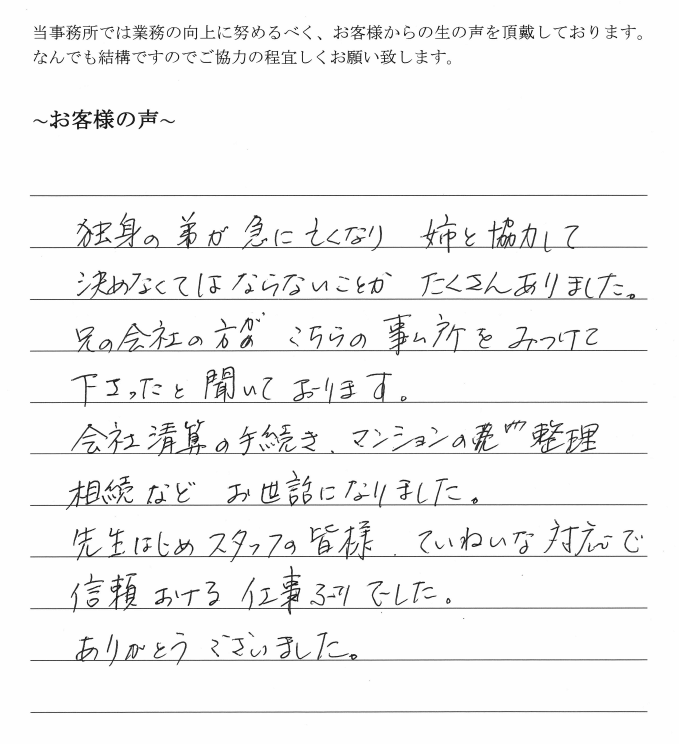 当事務所では業務の向上に努めるべく、お客様からの生の声を頂戴しております。
なんでも結構ですのでご協力の程宜しくお願い致します。
~お客様の声~
独身の弟が急に亡くなり 姉と協力して
決めなくてはならないことが たくさんありました。
兄の会社の方が こちらの事ム所をみつけて
下さったと聞いております。
会社清算の手続き、マンションの売却 整理
相続など お世話になりました。
先生はじめスタッフの皆様、ていねいな対応で
信頼おける仕事ぶりでした。
ありがとうございました。